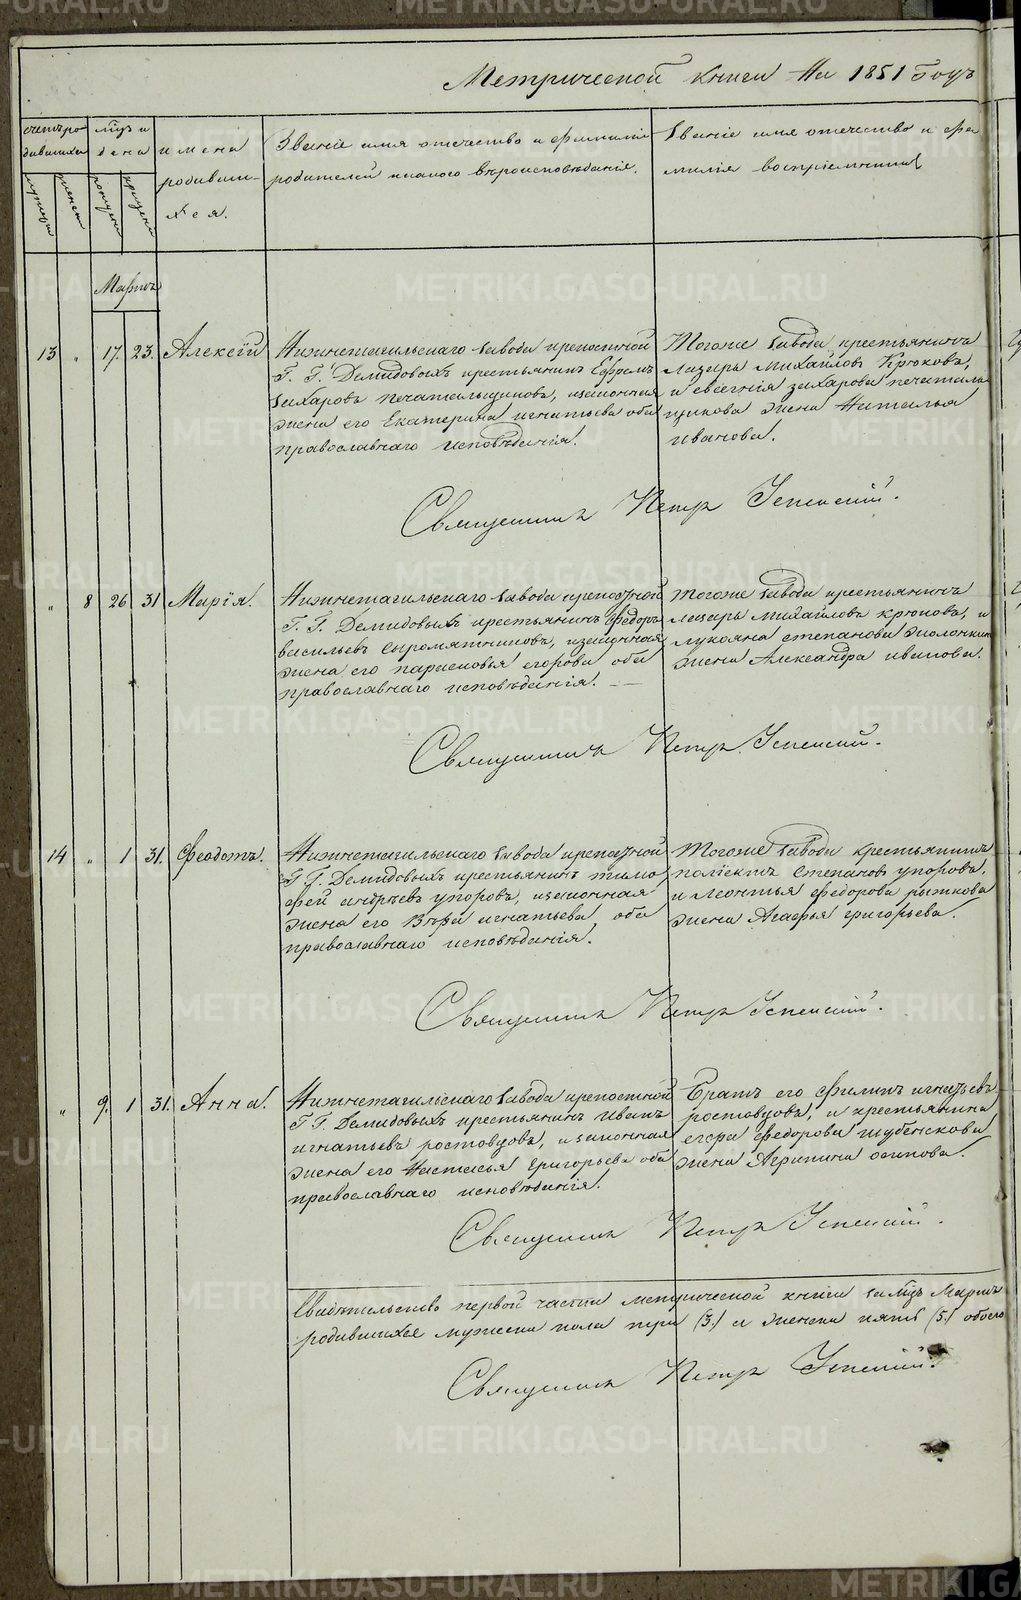 Метрической книги На 1851 Годъ
счетъ ро
дившихся
мужеска
женска
мѣц и
дена
рожденія
крещенія
имена
родивши-
хся.
Званіе имя отечество и фамиліи
родителей и какого вѣроисповѣданія.
Званіе имя отечество и фа
милія воспріемниковъ
Мартъ
13 „ 17. 23. Алексѣй
Нижнетагильскаго завода крепостной
Г. Г. Демидовыхъ крестьянинъ Ефремъ
Захаровъ печатальщиковъ, изаконная
жена его Екатерина игнатьева оба
православнаго исповѣданія.
Тогоже завода крестьянинъ
Лазарь Михайловъ Крюковъ,
и евгенія захарова печаталь
щикова жена Наталья
иванова.
Священникъ Петръ Успенскій.
„ 8 26 31 Марія.
Нижнетагильскаго завода крепостной
Г. Г. Демидовыхъ крестьянинъ Федоръ
васильевъ сыромятниковъ, изаконная
жена его парасковья егорова оба
православнаго исповѣданія.
Тогоже завода крестьянинъ
лазарь михайловъ крюковъ, и
лукояна степанова
жена Александра иванова.
Священникъ Петръ Успенскій.
14 „ 1 31. Феодотъ.
Нижнетагильскаго завода крепостной
Г. Г. Демидовыхъ крестьянинъ тимо
фей андрѣевъ упоровъ, изаконная
жена его Вѣра игнатьева оба
православнаго исповѣданія.
Тогоже завода крестьянинъ
полiектъ степановъ упоровъ,
и Леонтья федорова рыжкова
жена Агафья григорьева.
Священникъ Петръ Успенскій.
„ 9. 1 31. Анна.
Нижнетагильскаго завода крепостной
Г Г. Демидовыхъ крестьянинъ Иванъ
игнатьевъ ростовцовъ, изаконная
жена его Настасья григорьева оба
православнаго исповѣданія.
Братъ его филипъ игнатьевъ
ростовцовъ, и крестьянина
егора федорова шубенскова
жена Агрипина осипова.
Священникъ Петръ Успенскій.
Свидѣтельство первой части метрической книги за мѣцъ Мартъ
родившихся мужеска пола три (3.) а женска пять (5.) обоего
Священникъ Петръ Успенскій.
METRIKI.GASO-URAL.RU